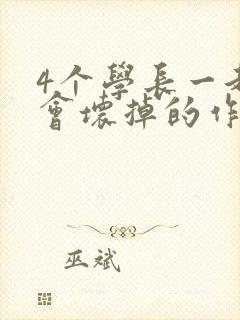 4个學長一
會壞掉的作
巫斌